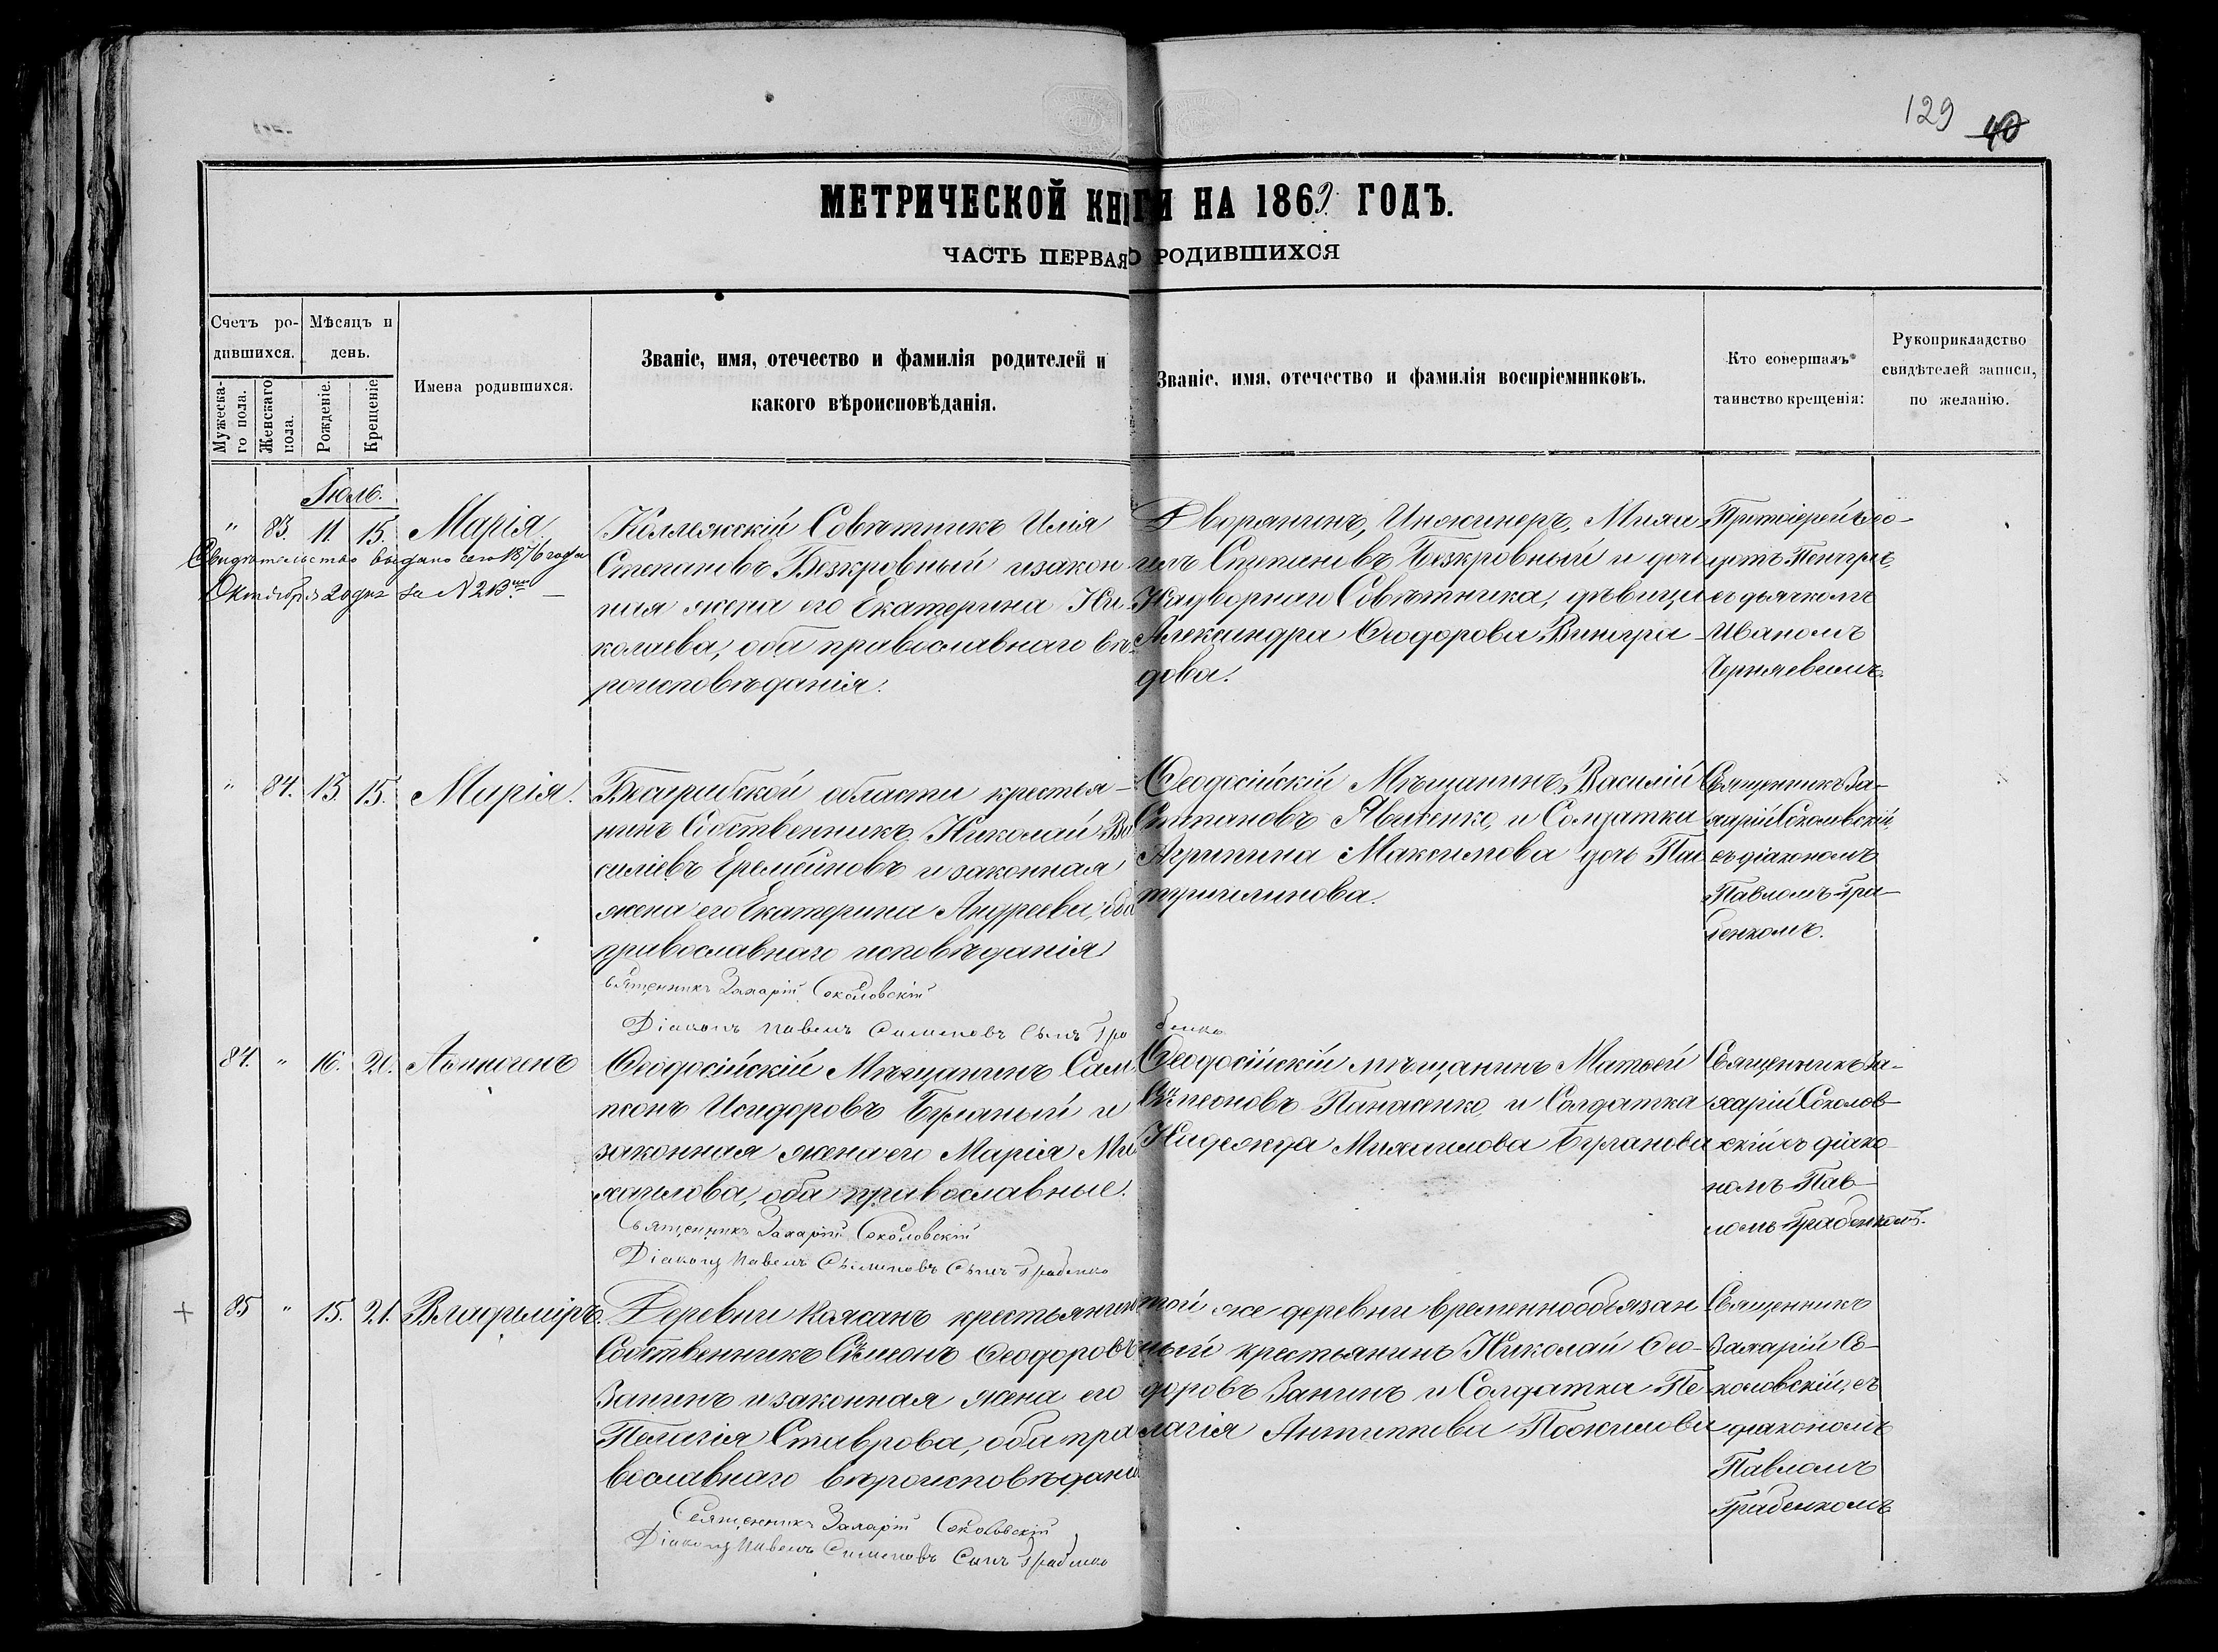 129 40
МЕТРИЧЕСКОЙ КНИГИ НА 1869 ГОДЪ.
ЧАСТЬ ПЕРВАЯ О РОДИВШИХСЯ
Счетъ ро-
дившихся.
Мужеска-
го пола.
Женскаго
пола.
Мѣсяцъ и
день.
Рожденіе.
Крещеніе.
Имена родившихся.
Званіе, имя, отечество и фамилія родителей и
какого вѣроисповѣданія.
Званіе, имя, отечество и фамилія воспріемниковъ.
Кто совершалъ
таинство крещенія:
Рукоприкладство
свидѣтелей записи,
по желанію.
Іюль.
" 83. 11. 15. Марія
Свидѣтельство выдано сего 1876 года
Октября 20 дня за N 213
Коллежскій Совѣтникъ Илія
Степановъ Безкровный и закон
ная жена его Екатерина Ни-
колаева, оба православнаго вѣ-
роисповѣданія.
Дворянинъ, Инжинеръ, Миха
илъ Степановъ Безкровный и дочь
Надворнаго Совѣтника, дѣвица
Александра Ѳеодорова Виногра-
дова.
Протоіерей
съ дьячкомъ
Иваномъ
Черняевымъ.
" 84. 13. 15. Марія.
Бесарабской области крестья-
нинъ Собственникъ Николай Ва
силіевъ Еремѣиновъ и законная
жена его Екатерина Андреева, оба
православнаго исповѣданія
Священникъ Захарій Соколовскій
Діаконъ Павелъ Симеоновъ Сынъ Гра
бенко
Ѳеодосійскій Мѣщанинъ, Василій
Степановъ Явшенко, и Солдатка
Агрипина Максимова дочь
Священникъ За-
харій Соколовскій,
съ діакономъ
Павломъ Гра-
бенкомъ.
84. " 16. 20.
Ѳеодосійскій Мѣщанинъ Сам
псонъ Исидоровъ Буланый и
законная жена его Марія Ми
хаилова, оба православные.
Священникъ Захарій Соколовскій
Діаконъ Павелъ Симеоновъ Сынъ Грабенко
Ѳеодосійскій мѣщанинъ Матѳей
Сѵмеоновъ Панасенко, и Солдатка
Надежда Михаилова Буланова
Священникъ За-
харій Соколов-
скій съ діако-
номъ Пав-
ломъ Грабенкомъ.
+ 85 " 15. 21. Владиміръ.
Деревни Коясанъ крестьянинъ
Собственникъ Сѵмеонъ Ѳеодоровъ
Занинъ и законная жена его
Пелагія Ставрова, оба пра
вославнаго вѣроисповѣданія
Священникъ Захарій Соколовскій
Діаконъ Павелъ Симеоновъ Сынъ Грабенко
той же деревни временнообязан
ный крестьянинъ Николай Ѳео-
доровъ Занинъ и Солдатка Пе-
лагія Антипова Пожилова
Священникъ
Захарій Со-
коловскій, съ
діакономъ
Павломъ
Грабенкомъ